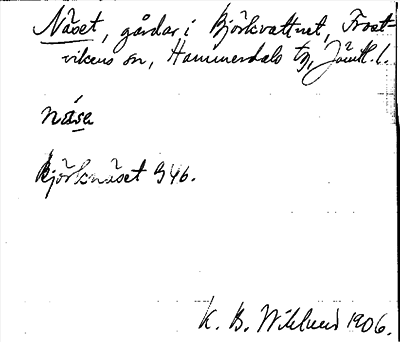 Näset, gårdar i Björkvattnet, Frost-
vikens sn, Hammerdals tg, Jämtl. l.
näsa
Björknäset G46.
K. B. Wiklund 1906.